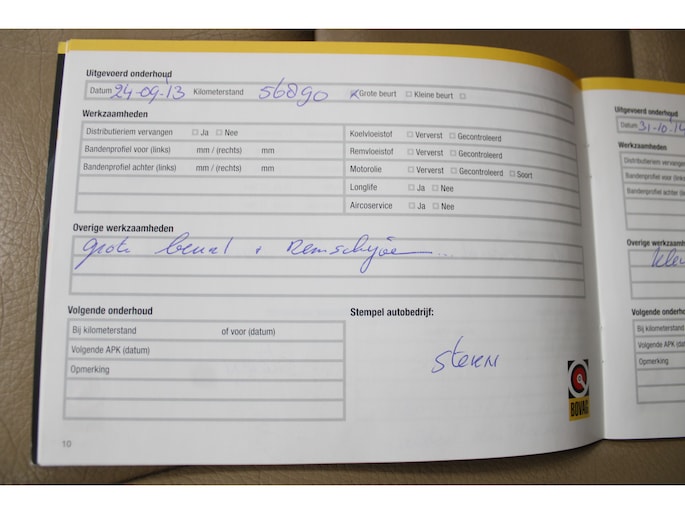 Uitgevoerd onderhoud
Datum 24-09-13 Kilometerstand 56890 Grote beurt Kleine beurt
Werkzaamheden
Distributieriem vervangen Ja Nee
Bandenprofiel voor (links) mm / (rechts) mm
Bandenprofiel achter (links) mm / (rechts) mm
Koelvloeistof Ververst Gecontroleerd
Remvloeistof Ververst Gecontroleerd
Motorolie Ververst Gecontroleerd Soort
Longlife Ja Nee
Aircoservice Ja Nee
Overige werkzaamheden
grote beurt + Remschijven
Volgende onderhoud
Bij kilometerstand of voor (datum)
Volgende APK (datum)
Opmerking
Stempel autobedrijf:
BOVAG
10
Uitgevoerd onderhoud
Datum 31-10-14
Werkzaamheden
Distributieriem
Bandenprofiel voor (links)
Bandenprofiel achter
Overige werkzaamh
Volgende onderho
Bij kilometerstand
Volgende APK (dat
Opmerking